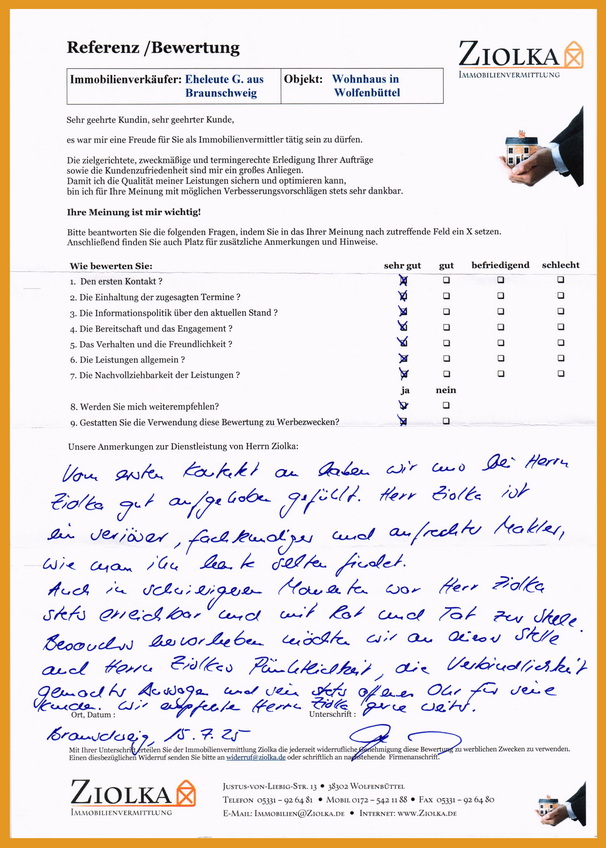 Referenz /Bewertung
ZIOLKA
IMMOBILIENVERMITTLUNG
Immobilienverkäufer: Eheleute G. aus Braunschweig
Objekt: Wohnhaus in Wolfenbüttel
Sehr geehrte Kundin, sehr geehrter Kunde,
es war mir eine Freude für Sie als Immobilienvermittler tätig sein zu dürfen.
Die zielgerichtete, zweckmäßige und termingerechte Erledigung Ihrer Aufträge
sowie die Kundenzufriedenheit sind mir ein großes Anliegen.
Damit ich die Qualität meiner Leistungen sichern und optimieren kann,
bin ich für Ihre Meinung mit möglichen Verbesserungsvorschlägen stets sehr dankbar.
Ihre Meinung ist mir wichtig!
Bitte beantworten Sie die folgenden Fragen, indem Sie in das Ihrer Meinung nach zutreffende Feld ein X setzen.
Anschließend finden Sie auch Platz für zusätzliche Anmerkungen und Hinweise.
Wie bewerten Sie: sehr gut gut befriedigend schlecht
1. Den ersten Kontakt ?
2. Die Einhaltung der zugesagten Termine ?
3. Die Informationspolitik über den aktuellen Stand ?
4. Die Bereitschaft und das Engagement ?
5. Das Verhalten und die Freundlichkeit ?
6. Die Leistungen allgemein ?
7. Die Nachvollziehbarkeit der Leistungen ?
ja nein
8. Werden Sie mich weiterempfehlen?
9. Gestatten Sie die Verwendung diese Bewertung zu Werbezwecken?
Unsere Anmerkungen zur Dienstleistung von Herrn Ziolka:
Vom ersten Kontakt an haben wir uns bei Herrn
Ziolka gut aufgehoben gefühlt. Herr Ziolka ist
ein seriöser, fachkundiger und aufrechter Makler,
wie man ihn heute selten findet.
Auch in schwierigeren Momenten war Herr Ziolka
stets erreichbar und mit Rat und Tat zur Stelle.
Besonders hervorheben möchten wir an dieser Stelle
auch Herrn Ziolkas Pünktlichkeit, die Verbindlichkeit
gemachter Aussagen und sein stets offenes Ohr für seine
Kunden. Wir empfehlen Herrn Ziolka gerne weiter.
Ort, Datum : Unterschrift :
Braunschweig, 15.7.25
Mit Ihrer Unterschrift erteilen Sie der Immobilienvermittlung Ziolka die jederzeit widerrufliche Genehmigung diese Bewertung zu werblichen Zwecken zu verwenden.
Einen diesbezüglichen Widerruf senden Sie bitte an widerruf@ziolka.de oder schriftlich an nachstehende Firmenanschrift.
ZIOLKA
IMMOBILIENVERMITTLUNG
JUSTUS-VON-LIEBIG-STR. 13 • 38302 WOLFENBÜTTEL
TELEFON 05331 – 92 64 81 • MOBIL 0172 – 542 11 88 • FAX 05331 – 92 64 80
E-MAIL: IMMOBILIEN@ZIOLKA.DE • INTERNET: WWW.ZIOLKA.DE